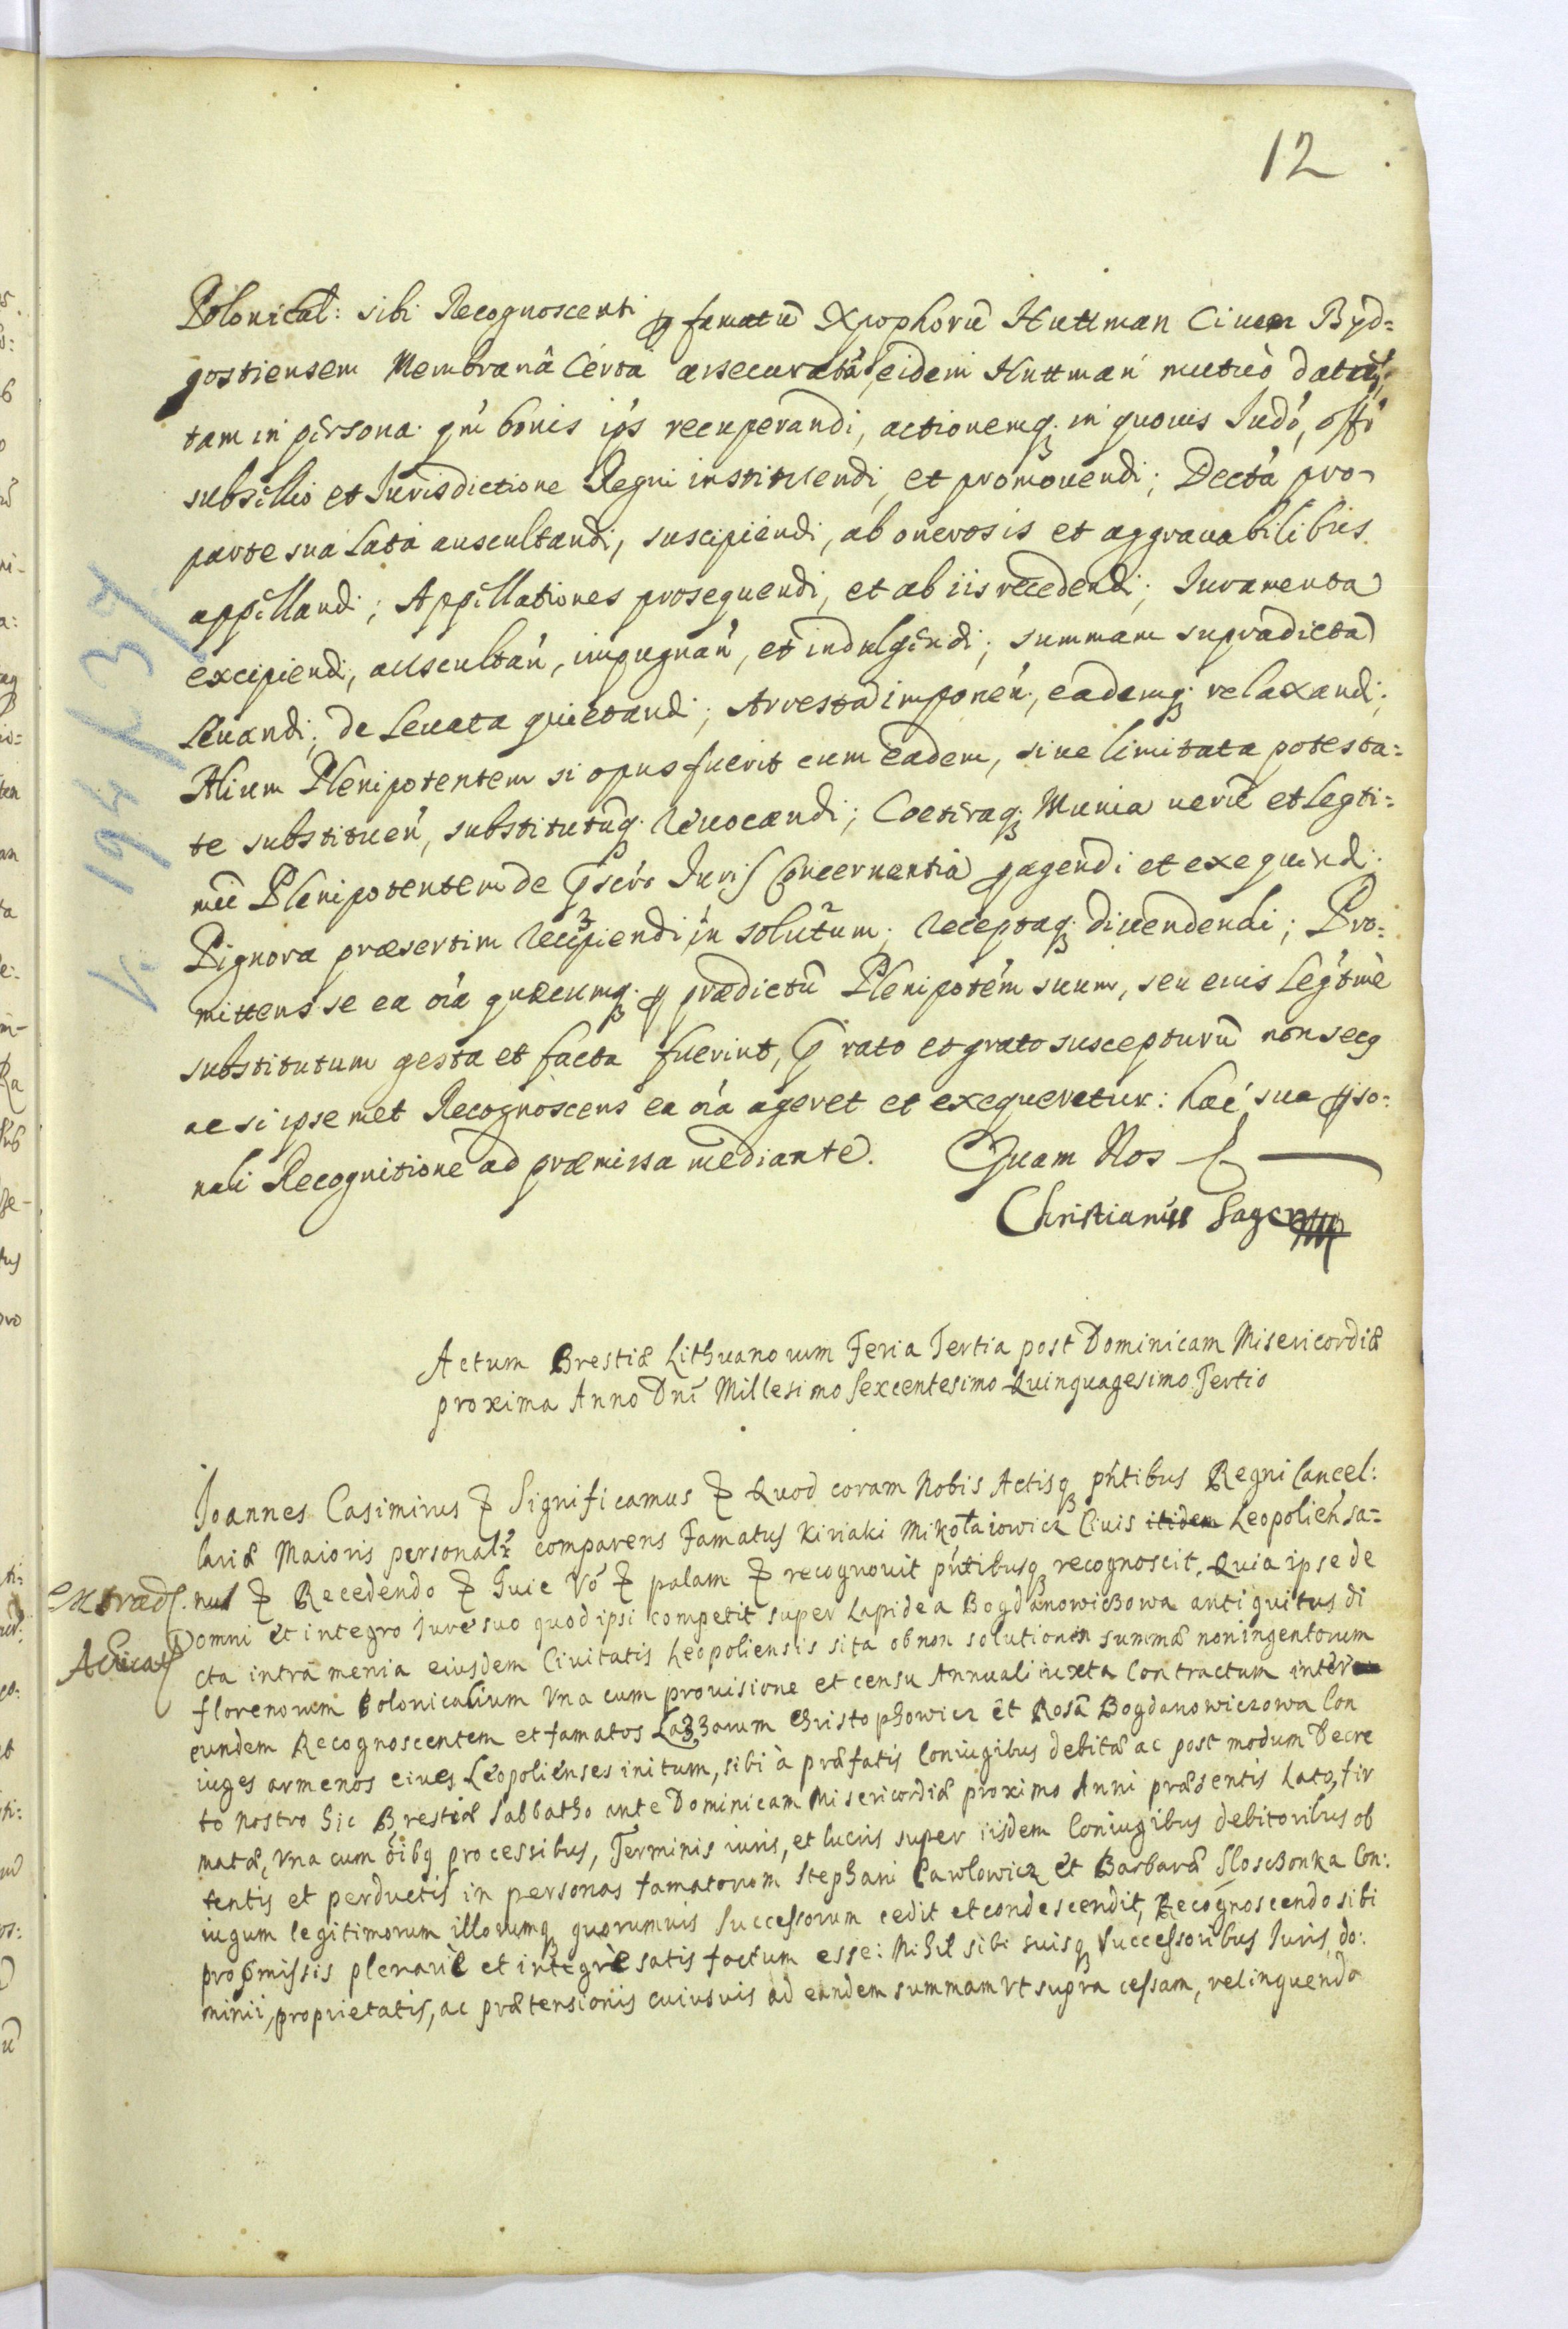 12
Polonical: sibi Recognoscenti ꝑ famatū Xpophorū Huttman Ciuem Byd=
gostiensem Membranâ Certâ assecuratã, eidem Huttman mutuò datã,
tam in persona qm̃ bonis ip̃s recuperandi, actionemq̃ in quouis Judõ, offõ
subsellio et Jurisdictione Regni instituendi, et promouendi; Decta pro
parte sua Lata auscultandi, suscipiendi, ab onerosis et aggrauabilibus
appellandi; Appellationes prosequendi, et ab iis recedendi; Juramenta
excipiendi, auscultañ, impugnañ, et indulgendi; summam supradicta
Leuandi; de Leuata quietandi; Arresta imponeñ, eademq̃ relaxandi;
Alium Plenipotentem si opus fuerit cum eadem, siue limitata potesta=
te substitueñ, substitutũq̃ Reuocandi; Coeteraq̃ Munia uerũ et Legti=
mũ Plenipotentem de Juris Concernentia ꝑagendi et exequendi
Pignora præsertim Recipiendi in solutum; Receptaq̃ diuendendi; Pro=
mittens se ea oĩa quæcumq̃ ꝑ prædictũ Plenipotẽm suum, seu eius Legtmè
substitutum gesta et facta fuerint, ꝓ rato et grato suscepturũ non secq
ac si ipsemet Recognoscens ea oĩa ageret et exequeretur: hac sua ꝑso=
nali Recognitione ad præmissa mediante. Quam Nos
Christianus Sager mp
V. 194 137
Actum Brestiæ Lithuanorum Feria Tertia post Dominicam Misericordiæ
proxima Anno Dnĩ Millesimo Sexcentesimo Quinquagesimo Tertio
Joannes Casimirus ꝑ Significamus ꝑ Quod coram Nobis Actisq̃ pñtibus Regni Cancel:
lariæ Maioris personalr̃ comparens Famatus Kiriaki Mikołaiowicz Ciuis itidem Leopolieñsa=
nus ꝑ Recedendo ꝑ Huic Võ ꝑ palam ꝑ recognouit pñtibusq̃ recognoscit. Quia ipse de
Extrad.
omni et integro Jure suo quod ipsi competit super Lapidea Bogdanowiczowa antiquitus di
cta intra menia eiusdem Ciuitatis Leopoliensis sita ob non solutionem summæ noningentorum
florenorum Polonicalium Vna cum prouisione et censu Annuali iuxta Contractum inter
eundem Recognoscentem et famatos Lazarum Christophowicz et Rosã Bogdanowiczowa Con
iuges armenos ciues Leopolienses initum, sibi à præfatis Coniugibus debitæ ac post modum Decre
to nostro hic Brestiæ Sabbatho ante Dominicam Misericordiæ proximo Anni præsentis Lato, fir
matæ, Vna cum oĩbq processibus, Terminis iuris, et lucris super iisdem Coniugibus debitoribus ob
tentis et perductis in personas famatorum Stephani Pawlowicz et Barbaræ Con:
iugum legitimorum illorumq̃ quorumuis Successorum cedit et condescendit, Recognoscendo sibi
pro pmissis plenariè et integrè satis factum esse: Nihil sibi suisq̃ Successoribus Juris, do:
minii, proprietatis, ac prætensionis cuiusuis ad eandem summam Vt supra cessam, relinquendo